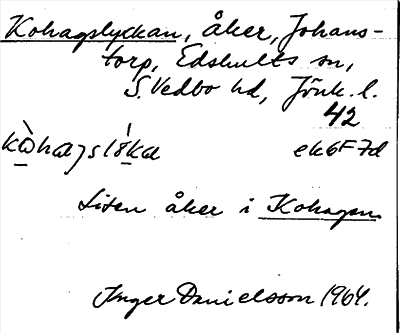 Kohagslyckan, åker, Johans-
torp, Edshults sn,
S. Vedbo hd, Jönk. l.
42
ek6F7d
Liten åker i Kohagen
Inger Danielsson 1964.